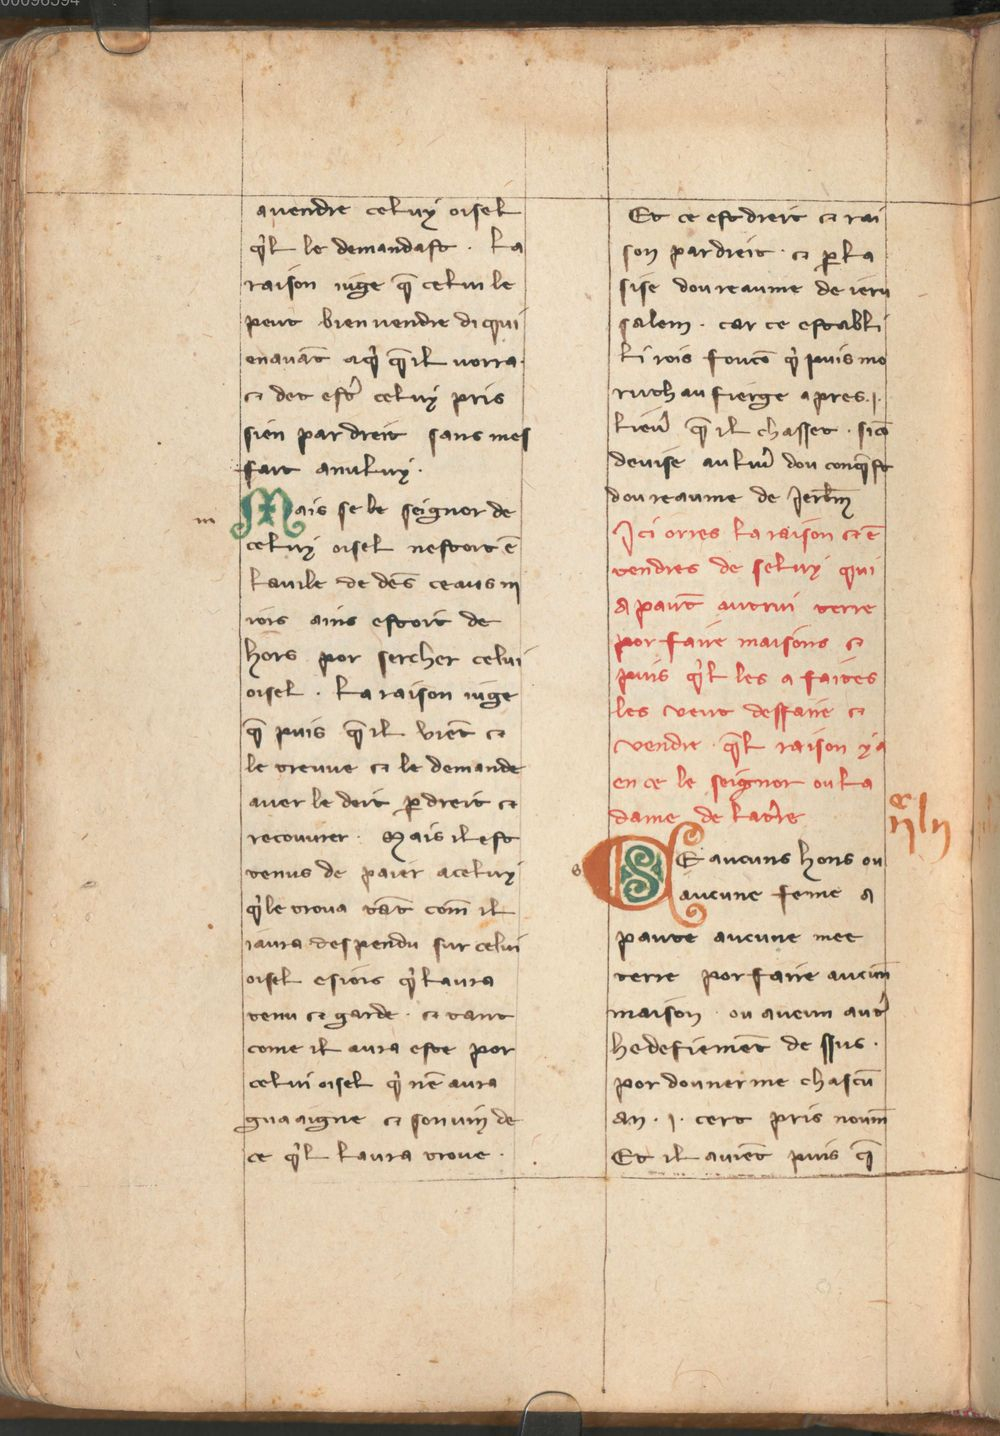 00096594
avendre celuy oisel
q'l le demandast . La
raison iuge q̄ celui le
peut bien vendre di qui
enavāt aq' q̄ il vorra.
⁊ det est' celuy pris
sien par dreit sans mes
fait anuluy.
m
Mais se le seignor de
celuy oisel nestoit ē
la vile de dēs ceaus iii
iors ains estoit de
hors por sercher celui
oisel . La raison iuge
q̄ puis q̄ il viēt ⁊
le treuve ⁊ le demande
aver le doit ꝑ dreit ⁊
recouvrer . Mais il est
tenus de paier a celuy
q' le trova tāt com̄ il
i aura despendu sur celui
oisel es iors q' l aura
tenu ⁊ garde . ⁊ tant
come il aura este por
celui oisel q' nē aura
guaaigne ⁊ son vin de
ce q'l laura trove .
Et ce est dreit ⁊ rai
son par dreit . ⁊ ꝑ la
sise dou reaume de ieru
salem . car ce establi
li rois foucō q' puis mo
rut h au fierge apres .i.
lievr' q̄ il chasset . si cō
devise au livr' dou conq̄st
dou reaume de Jerlm̄
Ici orres la raison ⁊ ē
tendres de seluy qui
apaut' autrui terre
por faire maisons ⁊
puis q'l les a faites
les veut desfaire ⁊
vendre . q̄l raison y a
en ce le seignor ou la
dame de la t're
s
SE aucuns hons ou
aucune feme a
paute aucune mee
terre por faire aucun̄
maison . ou aucun aut'
hedefiemēt de ssus .
por donner me chascū
an . i . cert pris noum̄
Et il aviēt puis q̄